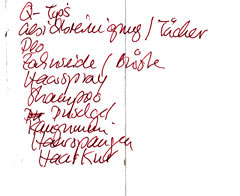 Q-Tips
Gesichtsreinigung / Tücher
Deo
Zahnseide / Bürste
Haarspray
Shampoo
Duschgel
Kaugummi
Haarspangen
Haarkur